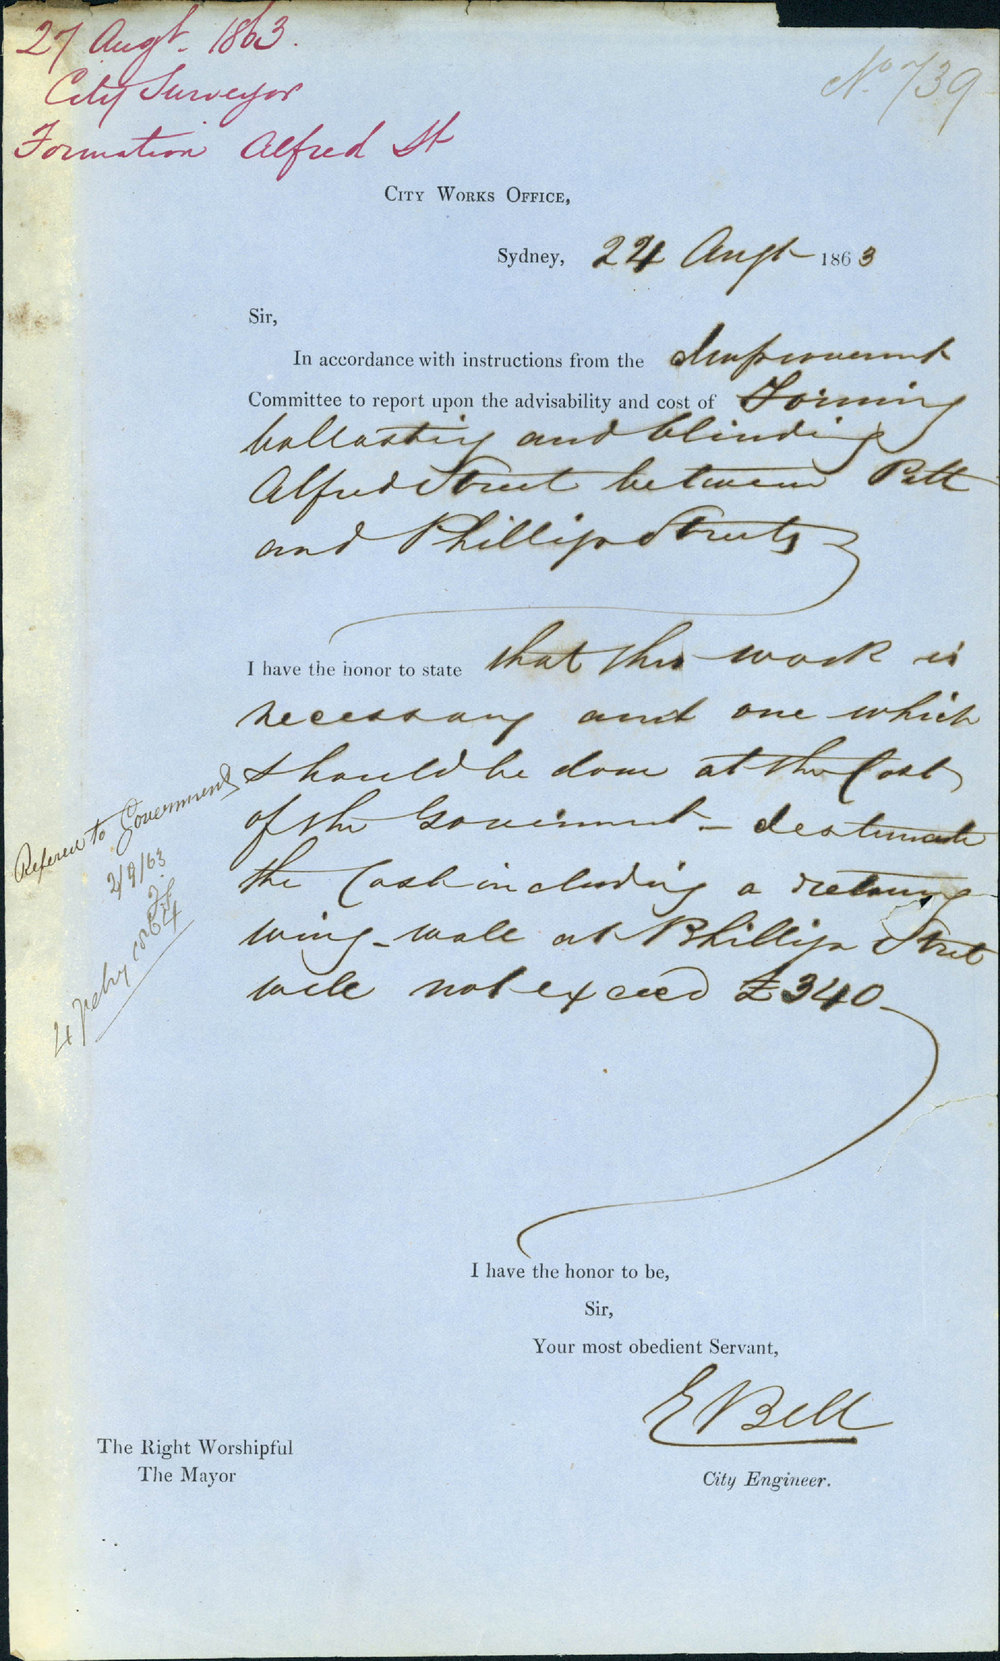 27 Augt. 1863.
City Surveyor
Formation Alfred St
No. 739
City Works Office,
Sydney, 24 Augt 1863
Sir,
In accordance with instructions from the Improvement
Committee to report upon the advisability and cost of Forming
ballasting and blinding
Alfred Street between Pitt
and Phillip Streets
I have the honor to state that this work is
necessary and one which
should be done at the Cost
of the Government - I estimate
the Cost including a retaining
wing-wall at Phillip Street
will not exceed £340
Refered to Government
2/9/63
I have the honor to be,
Sir,
Your most obedient Servant,
E Bell
City Engineer.
The Right Worshipful
The Mayor